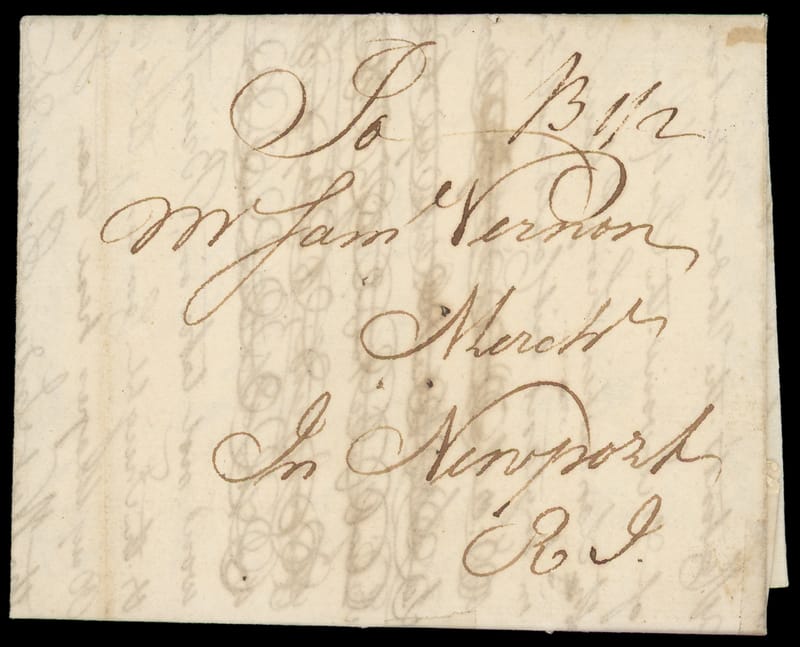 To B 1/2
Mr Saml Vernon
Mercht
In Newport
R I